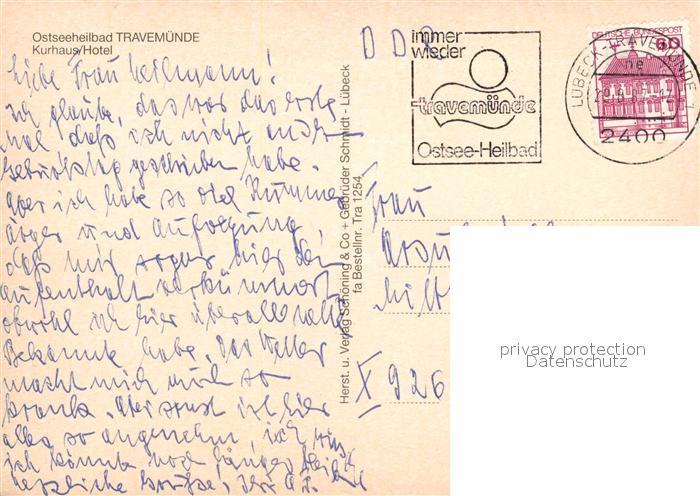 Ostseeheilbad TRAVEMÜNDE
Kurhaus/Hotel
Liebe Frau Heilmann!
Ich glaube, das war das erste
Mal daß ich nicht an Ihr
Geburtstag geschrieben habe.
Aber ich habe so viel Kummer
Ärger und Aufregung,
daß mir sogar hier der
Aufenthalt verkümmert
obwohl ich hier überall nette
Bekannte habe. Das Wetter
macht mich auch so
krank. Aber sonst ist hier
alles so angenehm, ich
ich könnte noch länger bleiben
herzliche Grüße, Ihre
Herst. u. Verlag Schöning & Co + Gebrüder Schmidt - Lübeck
fa Bestellnr. Tra 1254
DDR
immer
wieder
travemünde
Ostsee-Heilbad
DEUTSCHE BUNDESPOST
60
LÜBECK-TRAVEMÜNDE
ne
2400
Frau
X 926
privacy protection
Datenschutz